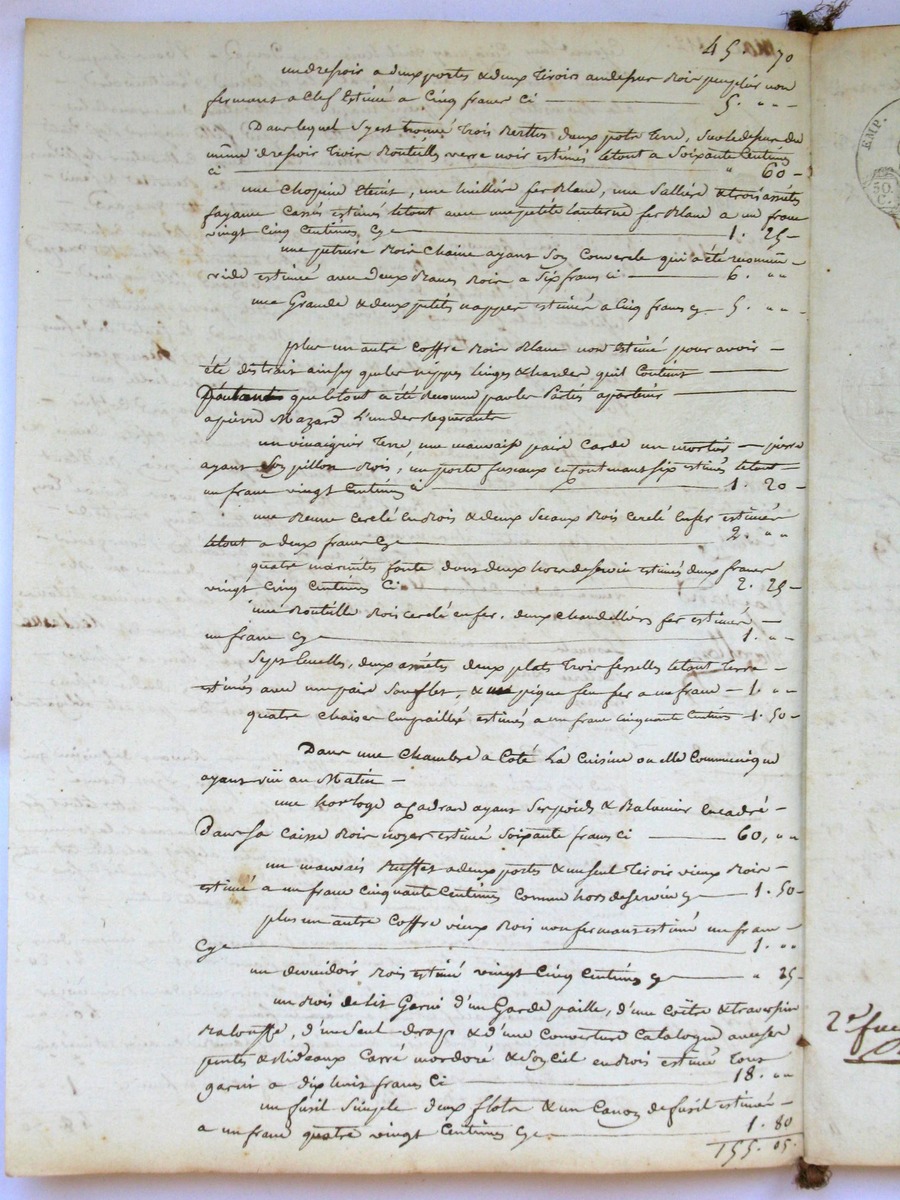 45. 70
un dresoir a deux portes & deux tiroirs au dessus bois peuplier non
fermant a clef Estimé a Cinq francs Ci 5. " "
Dans lequel s'y est trouvé trois deux pots terre, sur le dessus du
même dresoir trois Bouteilles verre noir estimés le tout a Soixante Centimes
Ci " 60
une Chopine Eteint, une huillière fer Blanc, une Sallière & trois assietes
fayance Cassés estimés le tout avec une petite lanterne fer Blanc a un franc
vingt Cinq Centimes Cy 1. 25
une petrière Bois Chaine ayant Son Couvercle qui a été
vide estimée avec deux Bancs Bois a Six francs Ci 6. " "
une Grande & deux petits nappes estimés a Cinq francs Cy 5. " "
plus un autre Coffre Bois Blanc non Estimé pour avoir
été distrait ainsy que les nippes linges & hardes qu'il Contient
D'autant que le tout a été Reconnu par les Parties apartenir
a pierre Mazard l'un des Requerants
un vinaigrier terre, une mauvaise paire Carde un mortier pierre
ayant Son pillon Bois, un porte fuseaux en six estimés le tout
un franc vingt Centimes Ci 1. 20
une Benne Cerclé en Bois & deux Seaux Bois Cerclé en fer estimés
le tout a deux francs Cy 2. " "
quatre marmites fonte dont deux hors de Servir estimés deux francs
vingt Cinq Centimes Ci 2. 25
une Bouteille Bois Cerclé en fer, deux Chandelliers fer estimés
un franc Cy 1. " "
Sept Ecuelles, deux assietes deux plats trois fesselles le tout terre
estimés avec un paire Souflet, & un pique feu fer a un franc 1. " "
quatre Chaises Empaillée estimés a un franc Cinquante Centimes 1. 50
Dans une Chambre a Coté La Cuisine ou elle Communique
ayant vüe au Matin
une horloge a Cadran ayant Ses poids & Balancier Encadré
Dans Sa Caisse Bois noyer estimé Soixante francs Ci 60, " "
un mauvais Buffet a deux portes & un seul tiroir vieux Bois
estimé a un franc Cinquante Centimes Comme hors de Servir Cy 1. 50
plus un autre Coffre vieux Bois non fermant estimé un franc
Cy 1. " "
un devidoir Bois estimé vingt Cinq Centimes Cy " 25
un Bois de Lit Garni d'un Garde paille, d'une Coëtre & traversin
Balouffe, d'un Seul drap & d'une Couverture Catalogne avec ses
pentes & Rideaux Carré mordoré & Son Ciel en Bois estimé tout
garni a dix huit francs Ci 18. " "
un fusil Simple deux & un Canon de fusil estimés
a un franc quatre vingt Centimes Cy 1. 80
155. 05.
EMP.
50.
C.
2e